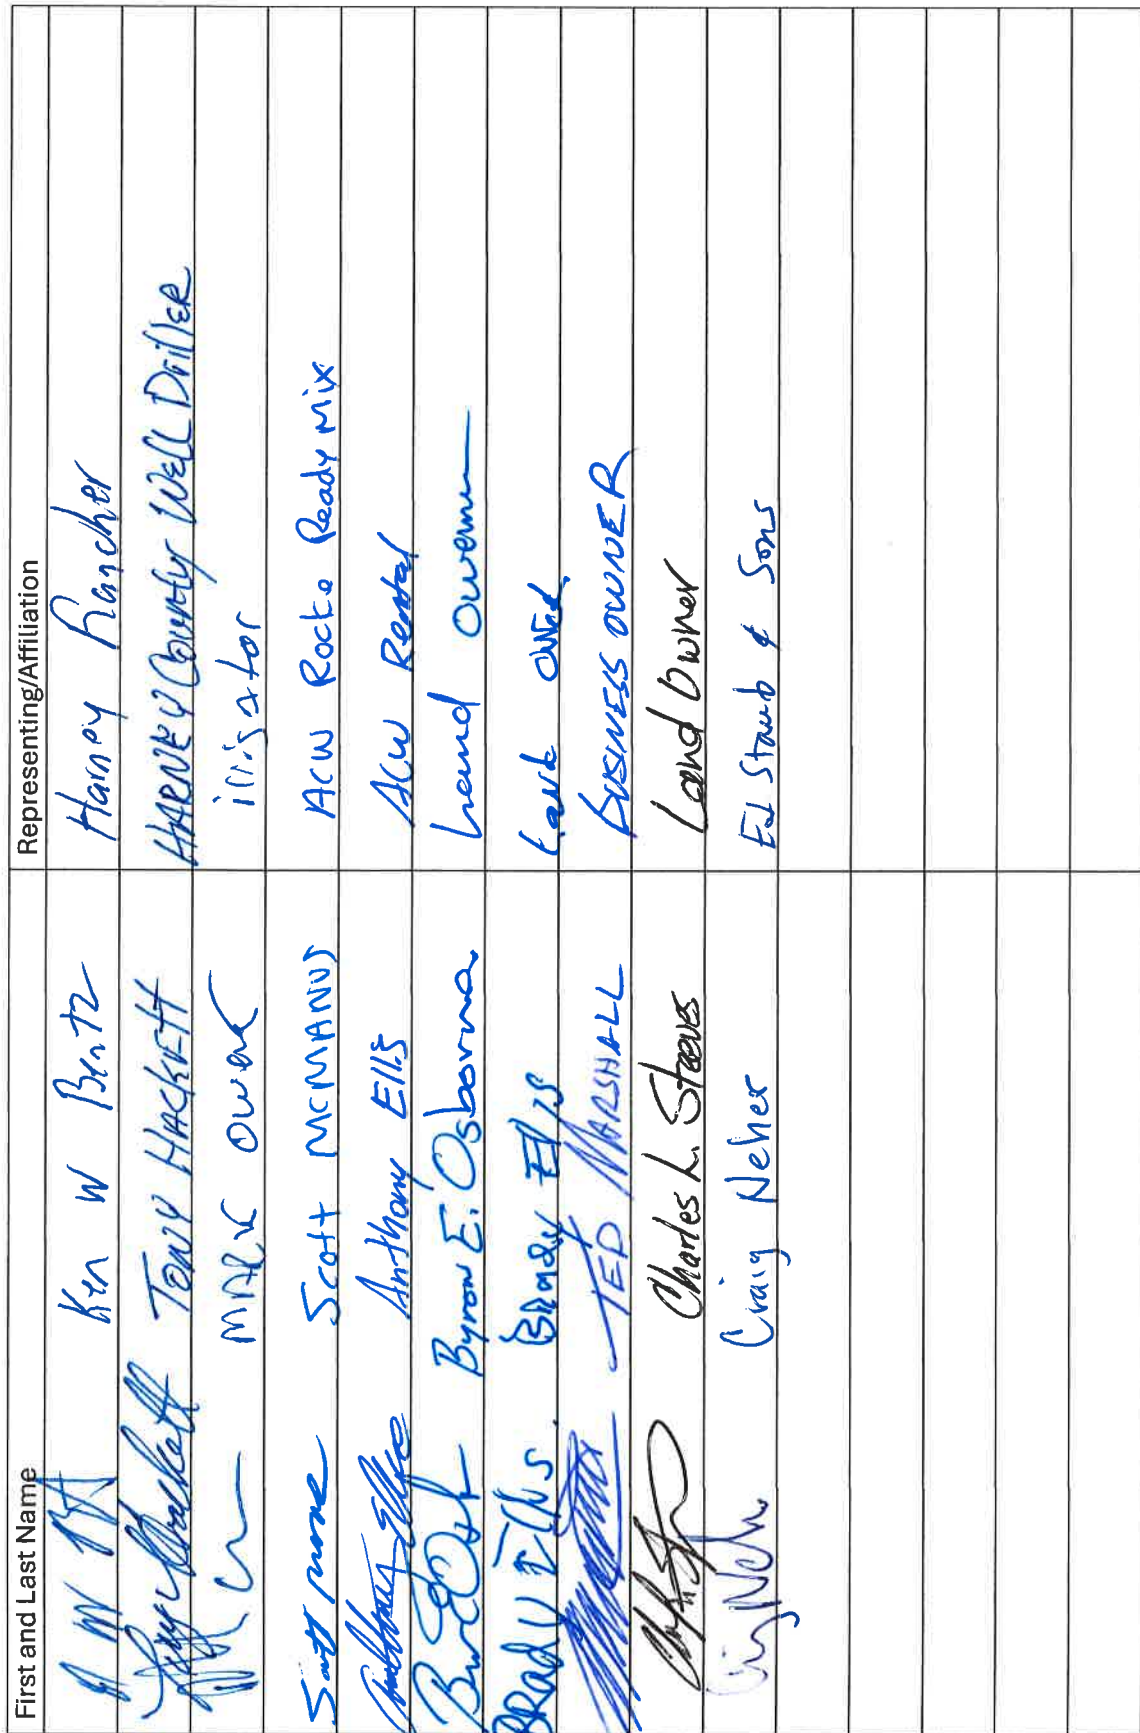 First and Last Name Representing/Affiliation
Ken W Bentz Harney Rancher
Tony Hackett TONY HACKETT HARNEY County Well Driller
MARK OWENS irrigator
Scott McMANUS ACW Rock & Ready Mix
Anthony Ellis Anthony Ellis ACW Rental
Byron E. Osborne Land Owner
Brady Ellis Brady Ellis Land Owner
TED MARSHALL BUSINESS OWNER
Charles L. Steeves Land Owner
Craig Neher Ed Staub & Sons